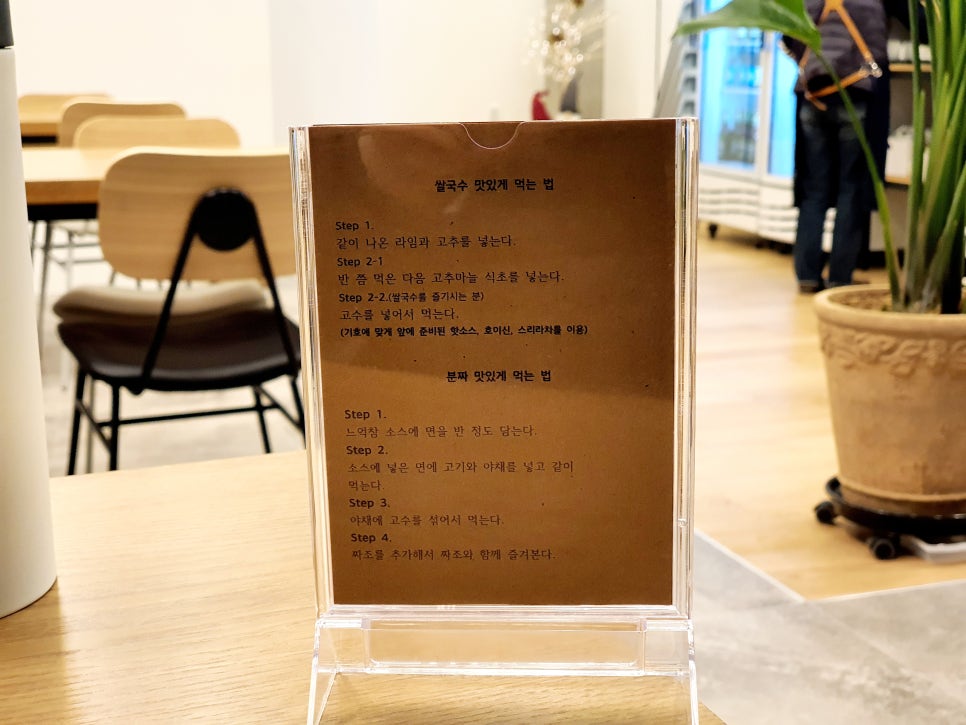 쌀국수 맛있게 먹는 법
Step 1.
같이 나온 라임과 고추를 넣는다.
Step 2-1
반 쯤 먹은 다음 고추마늘 식초를 넣는다.
Step 2-2.(쌀국수를 즐기시는 분)
고수를 넣어서 먹는다.
(기호에 맞게 앞에 준비된 핫소스, 호이신, 스리라차를 이용)
분짜 맛있게 먹는 법
Step 1.
느억참 소스에 면을 반 정도 담는다.
Step 2.
소스에 넣은 면에 고기와 야채를 넣고 같이
먹는다.
Step 3.
야채에 고수를 섞어서 먹는다.
Step 4.
짜조를 추가해서 짜조와 함께 즐겨본다.